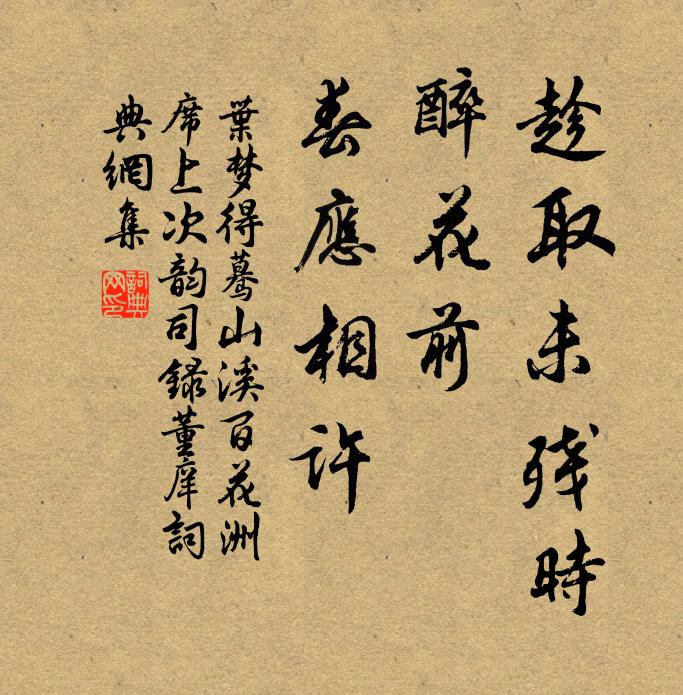 趁取未残時
醉花前
春應相許
葉梦得驀山溪百花洲
席上次韵司録董庠詞
典網集
詞典網印